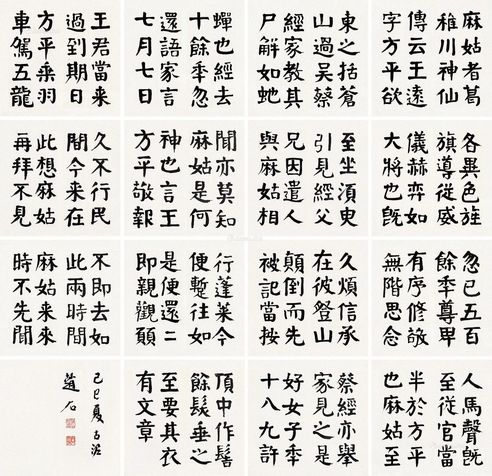 麻姑者葛
稚川神仙
傳云王遠
字方平欲
東之括蒼
山過吳蔡
經家教其
尸解如虵
蟬也經去
十餘秊忽
還語家言
七月七日
王君當来
過到期日
方平乘羽
車駕五龍
各異色旌
旗導從威
儀赫弈如
大將也既
至坐須臾
引見經父
兄因遣人
與麻姑相
聞亦莫知
麻姑是何
神也言王
方平敬報
久不行民
間今来在
此想麻姑
再拜不見
忽已五百
餘秊尊卑
有序修敬
無階思念
久煩信承
在彼登山
顛倒而先
被記當按
行蓬萊今
便蹔往如
是便還二
即親觀願
不即去如
此兩時間
麻姑来来
時不先聞
人馬聲既
至從官當
半於方平
也麻姑至
蔡經亦舉
家見之是
好女子秊
十八九許
頂中作髻
餘髮垂之
至要其衣
有文章
己巳夏